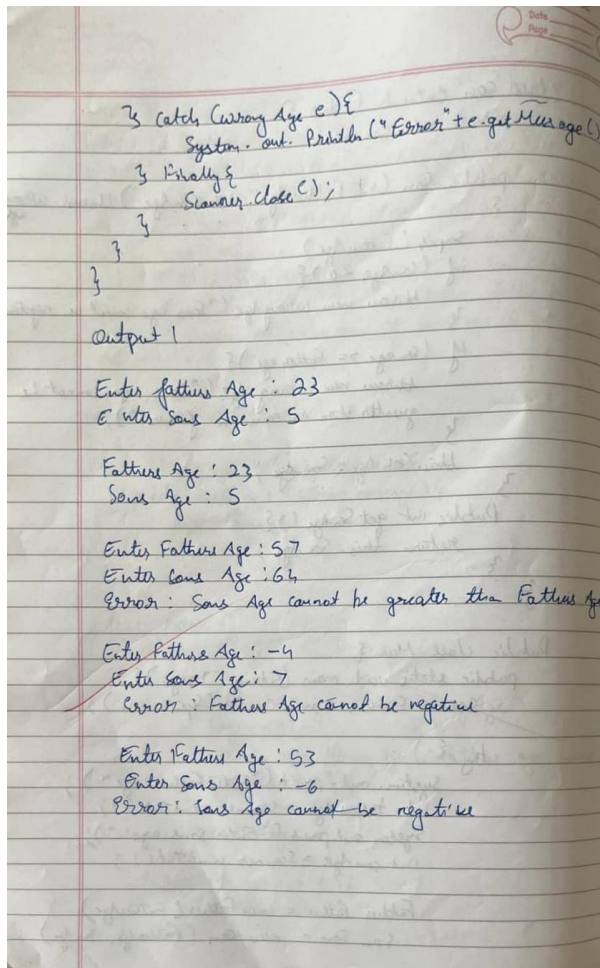 Date
Page
} catch (wrong Age e) {
System. out. Println ("Error" + e.get Message ()
} Finally {
Scanner. close ();
}
}
}
Output 1
Enter fathers Age : 23
Enter Sons Age : 5
Fathers Age : 23
Sons Age : 5
Enter Fathers Age : 57
Enter Sons Age : 64
Error : Sons Age cannot be greater than Fathers Age
Enter Fathers Age : -4
Enter Sons Age : 7
Error : Fathers Age cannot be negative
Enter Fathers Age : 53
Enter Sons Age : -6
Error : Sons Age cannot be negative